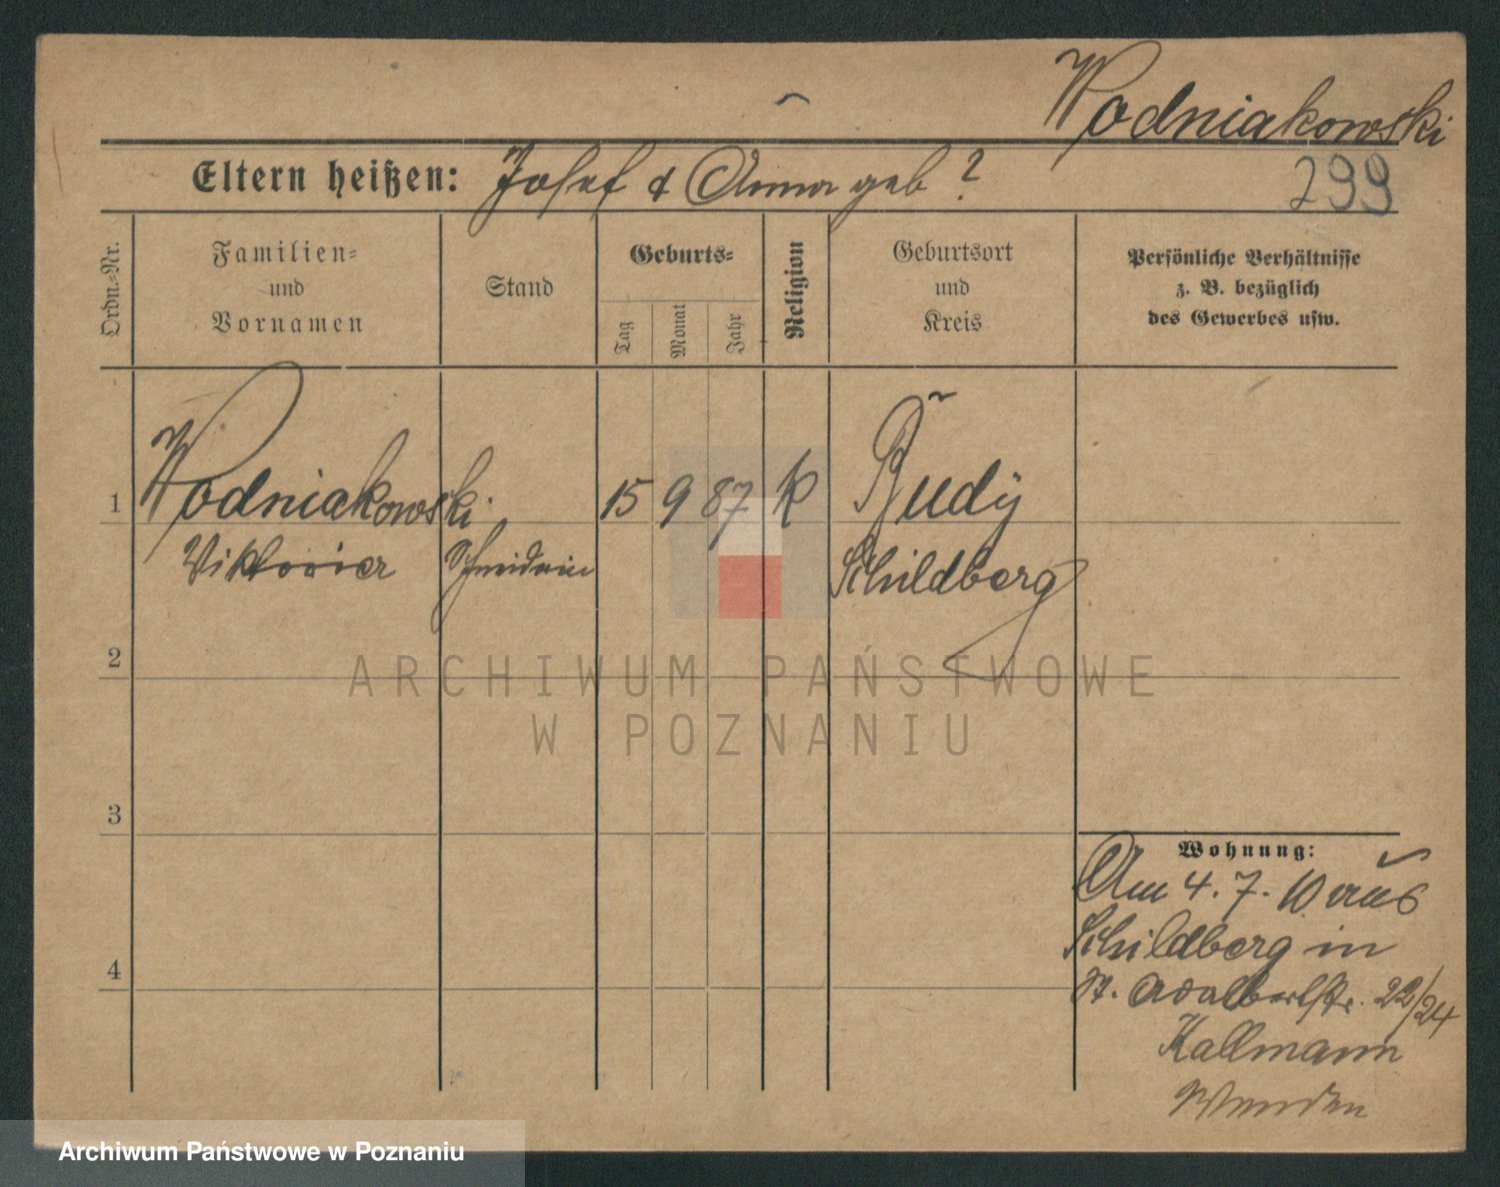 Wodniakowski
Eltern heißen: Josef & Anna geb ?
299
Ordn.-Nr.
Familien-
und
Vornamen
Stand
Geburts-
Tag
Monat
Jahr
Religion
Geburtsort
und
Kreis
Persönliche Verhältnisse
z. B. bezüglich
des Gewerbes usw.
1 Wodniakowski 15 9 87 k
Viktoria
Schneiderin
Schildberg
2
3
4
Wohnung:
Am 4. 7. 10 aus
Schildberg in
St. Adalbertstr. 22/24
Kallmann
Wenden
ARCHIWUM PAŃSTWOWE
W POZNANIU
Archiwum Państwowe w Poznaniu